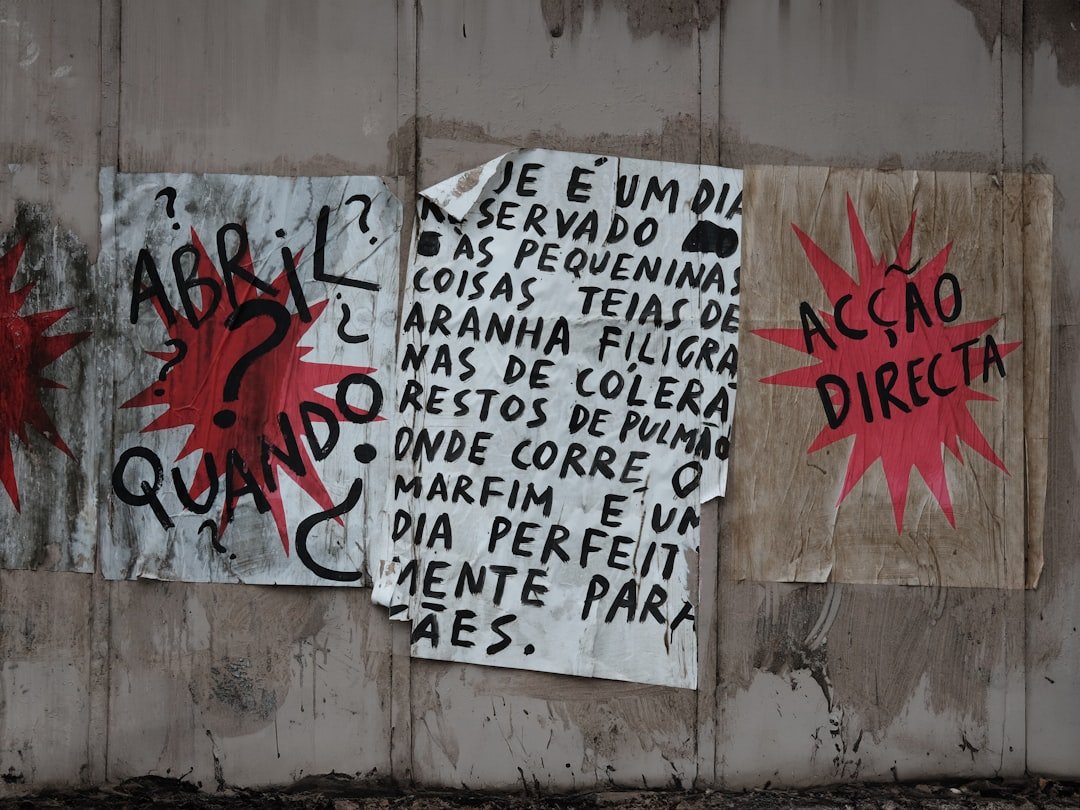 ABRIL
?
QUANDO
JE É UM DIA
RESERVADO
AS PEQUENINAS
COISAS TEIAS DE
ARANHA FILIGRA
NAS DE CÓLERA
RESTOS DE PULMÃO
ONDE CORRE O
MARFIM E UM
DIA PERFEIT
MENTE PARA
ÃES.
ACÇÃO
DIRECTA